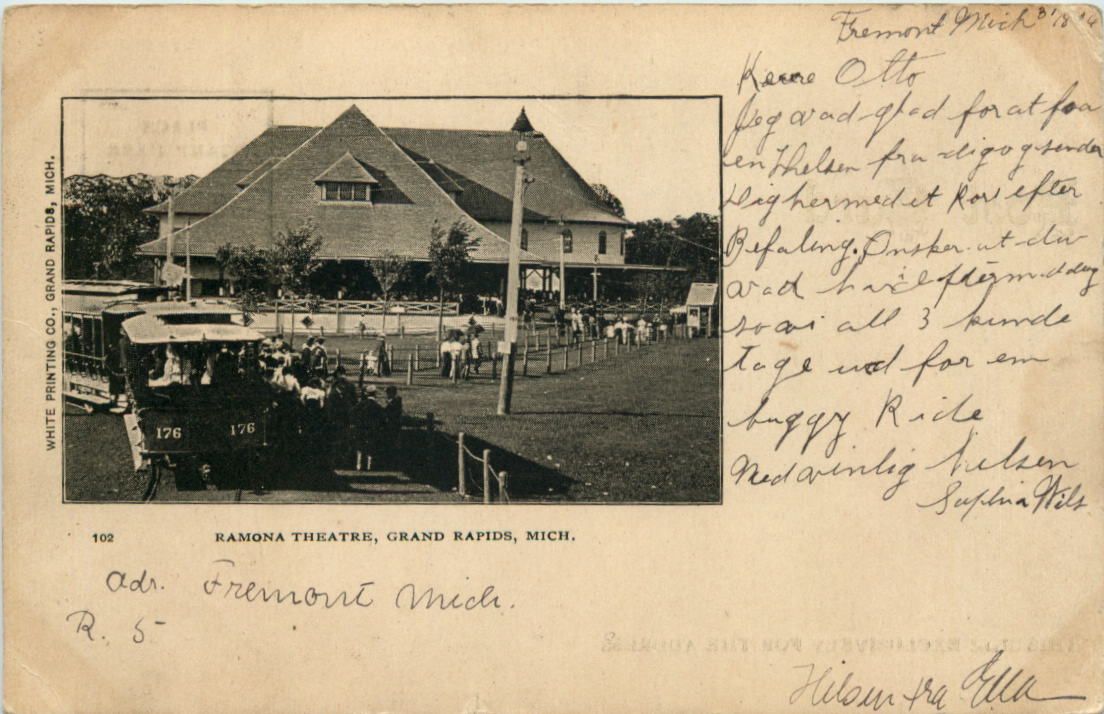 Fremont Mich 3/18
Kære Otto
Jeg vad glad for at faa
en Helsen fra dig og sender
dig hermed et Kort efter
Befaling. Onsker at du
vad her i eftermiddag
so vi all 3 kunde
tage ud for em
buggy Ride
Med vinlig Hilsen
Sophia Wils
WHITE PRINTING CO., GRAND RAPIDS, MICH.
176 176
102 RAMONA THEATRE, GRAND RAPIDS, MICH.
Adr. Fremont Mich.
R. 5
Hilsen fra Ella